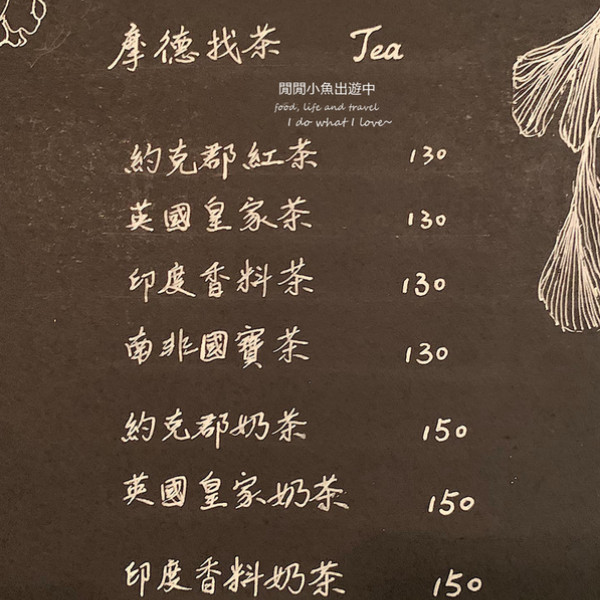 摩德找茶 Tea
閒閒小魚出遊中
food, life and travel
I do what I love~
約克郡紅茶 130
英國皇家茶 130
印度香料茶 130
南非國寶茶 130
約克郡奶茶 150
英國皇家奶茶 150
印度香料奶茶 150